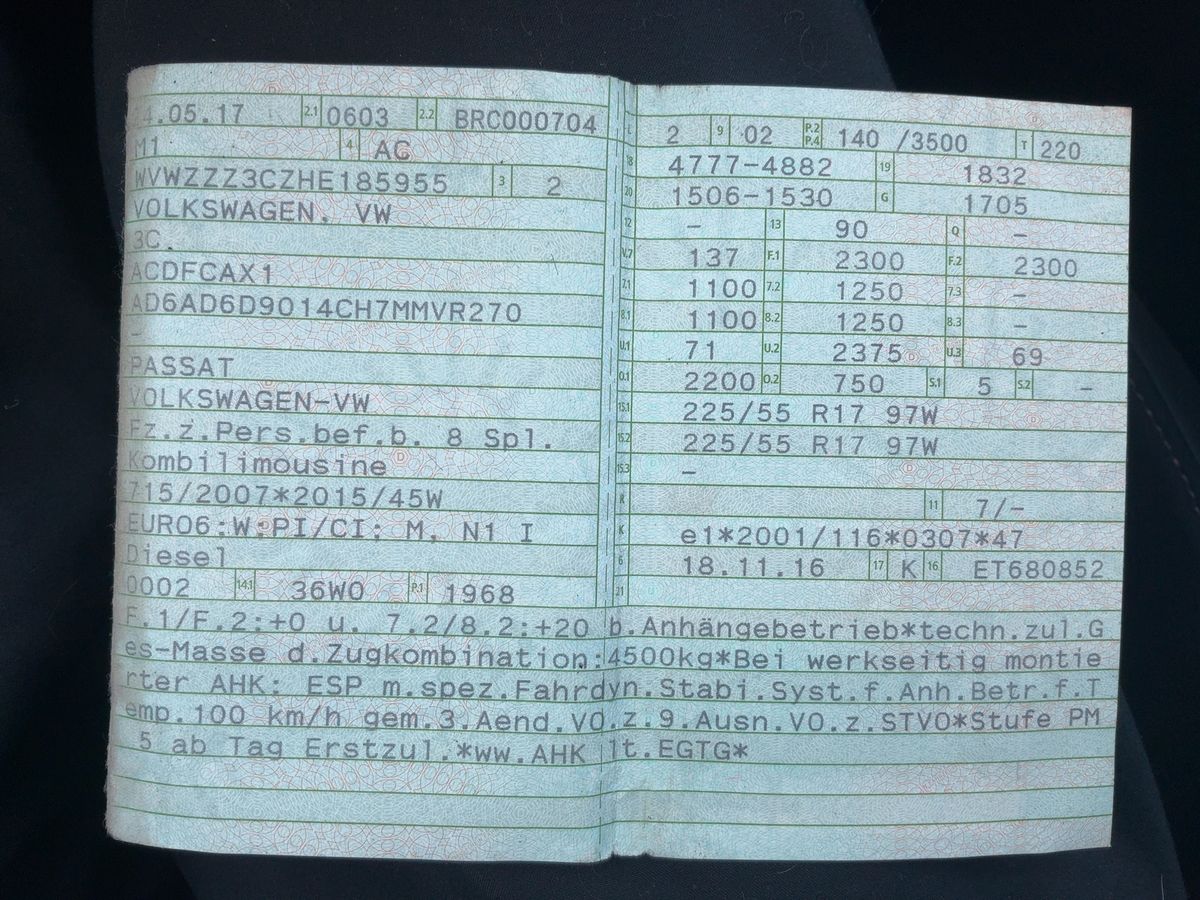 .05.17 2.1 0603 2.2 BRC000704
M1 4 AC
WVWZZZ3CZHE185955 3 2
VOLKSWAGEN, VW
3C
ACDFCAX1
AD6AD6D9014CH7MMVR270
–
PASSAT
VOLKSWAGEN-VW
Fz.z.Pers.bef.b. 8 Spl.
Kombilimousine
715/2007*2015/45W
EURO6;W;PI/CI; M, N1 I
Diesel
0002 14.1 36W0 P.1 1968
L 2 9 02 P.2 P.4 140 /3500 T 220
18 4777-4882 19 1832
20 1506-1530 G 1705
12 – 13 90 Q –
V.7 137 F.1 2300 F.2 2300
7.1 1100 7.2 1250 7.3 –
8.1 1100 8.2 1250 8.3 –
U.1 71 U.2 2375 U.3 69
O.1 2200 O.2 750 S.1 5 S.2 –
15.1 225/55 R17 97W
15.2 225/55 R17 97W
15.3 –
R 11 7/-
K e1*2001/116*0307*47
6 18.11.16 17 K 16 ET680852
21
F.1/F.2:+0 u. 7.2/8.2:+20 b.Anhängebetrieb*techn.zul.G
es-Masse d.Zugkombination:4500kg*Bei werkseitig montie
rter AHK: ESP m.spez.Fahrdyn.Stabi.Syst.f.Anh.Betr.f.T
emp.100 km/h gem.3.Aend.VO.z.9.Ausn.VO.z.STVO*Stufe PM
5 ab Tag Erstzul.*ww.AHK lt.EGTG*